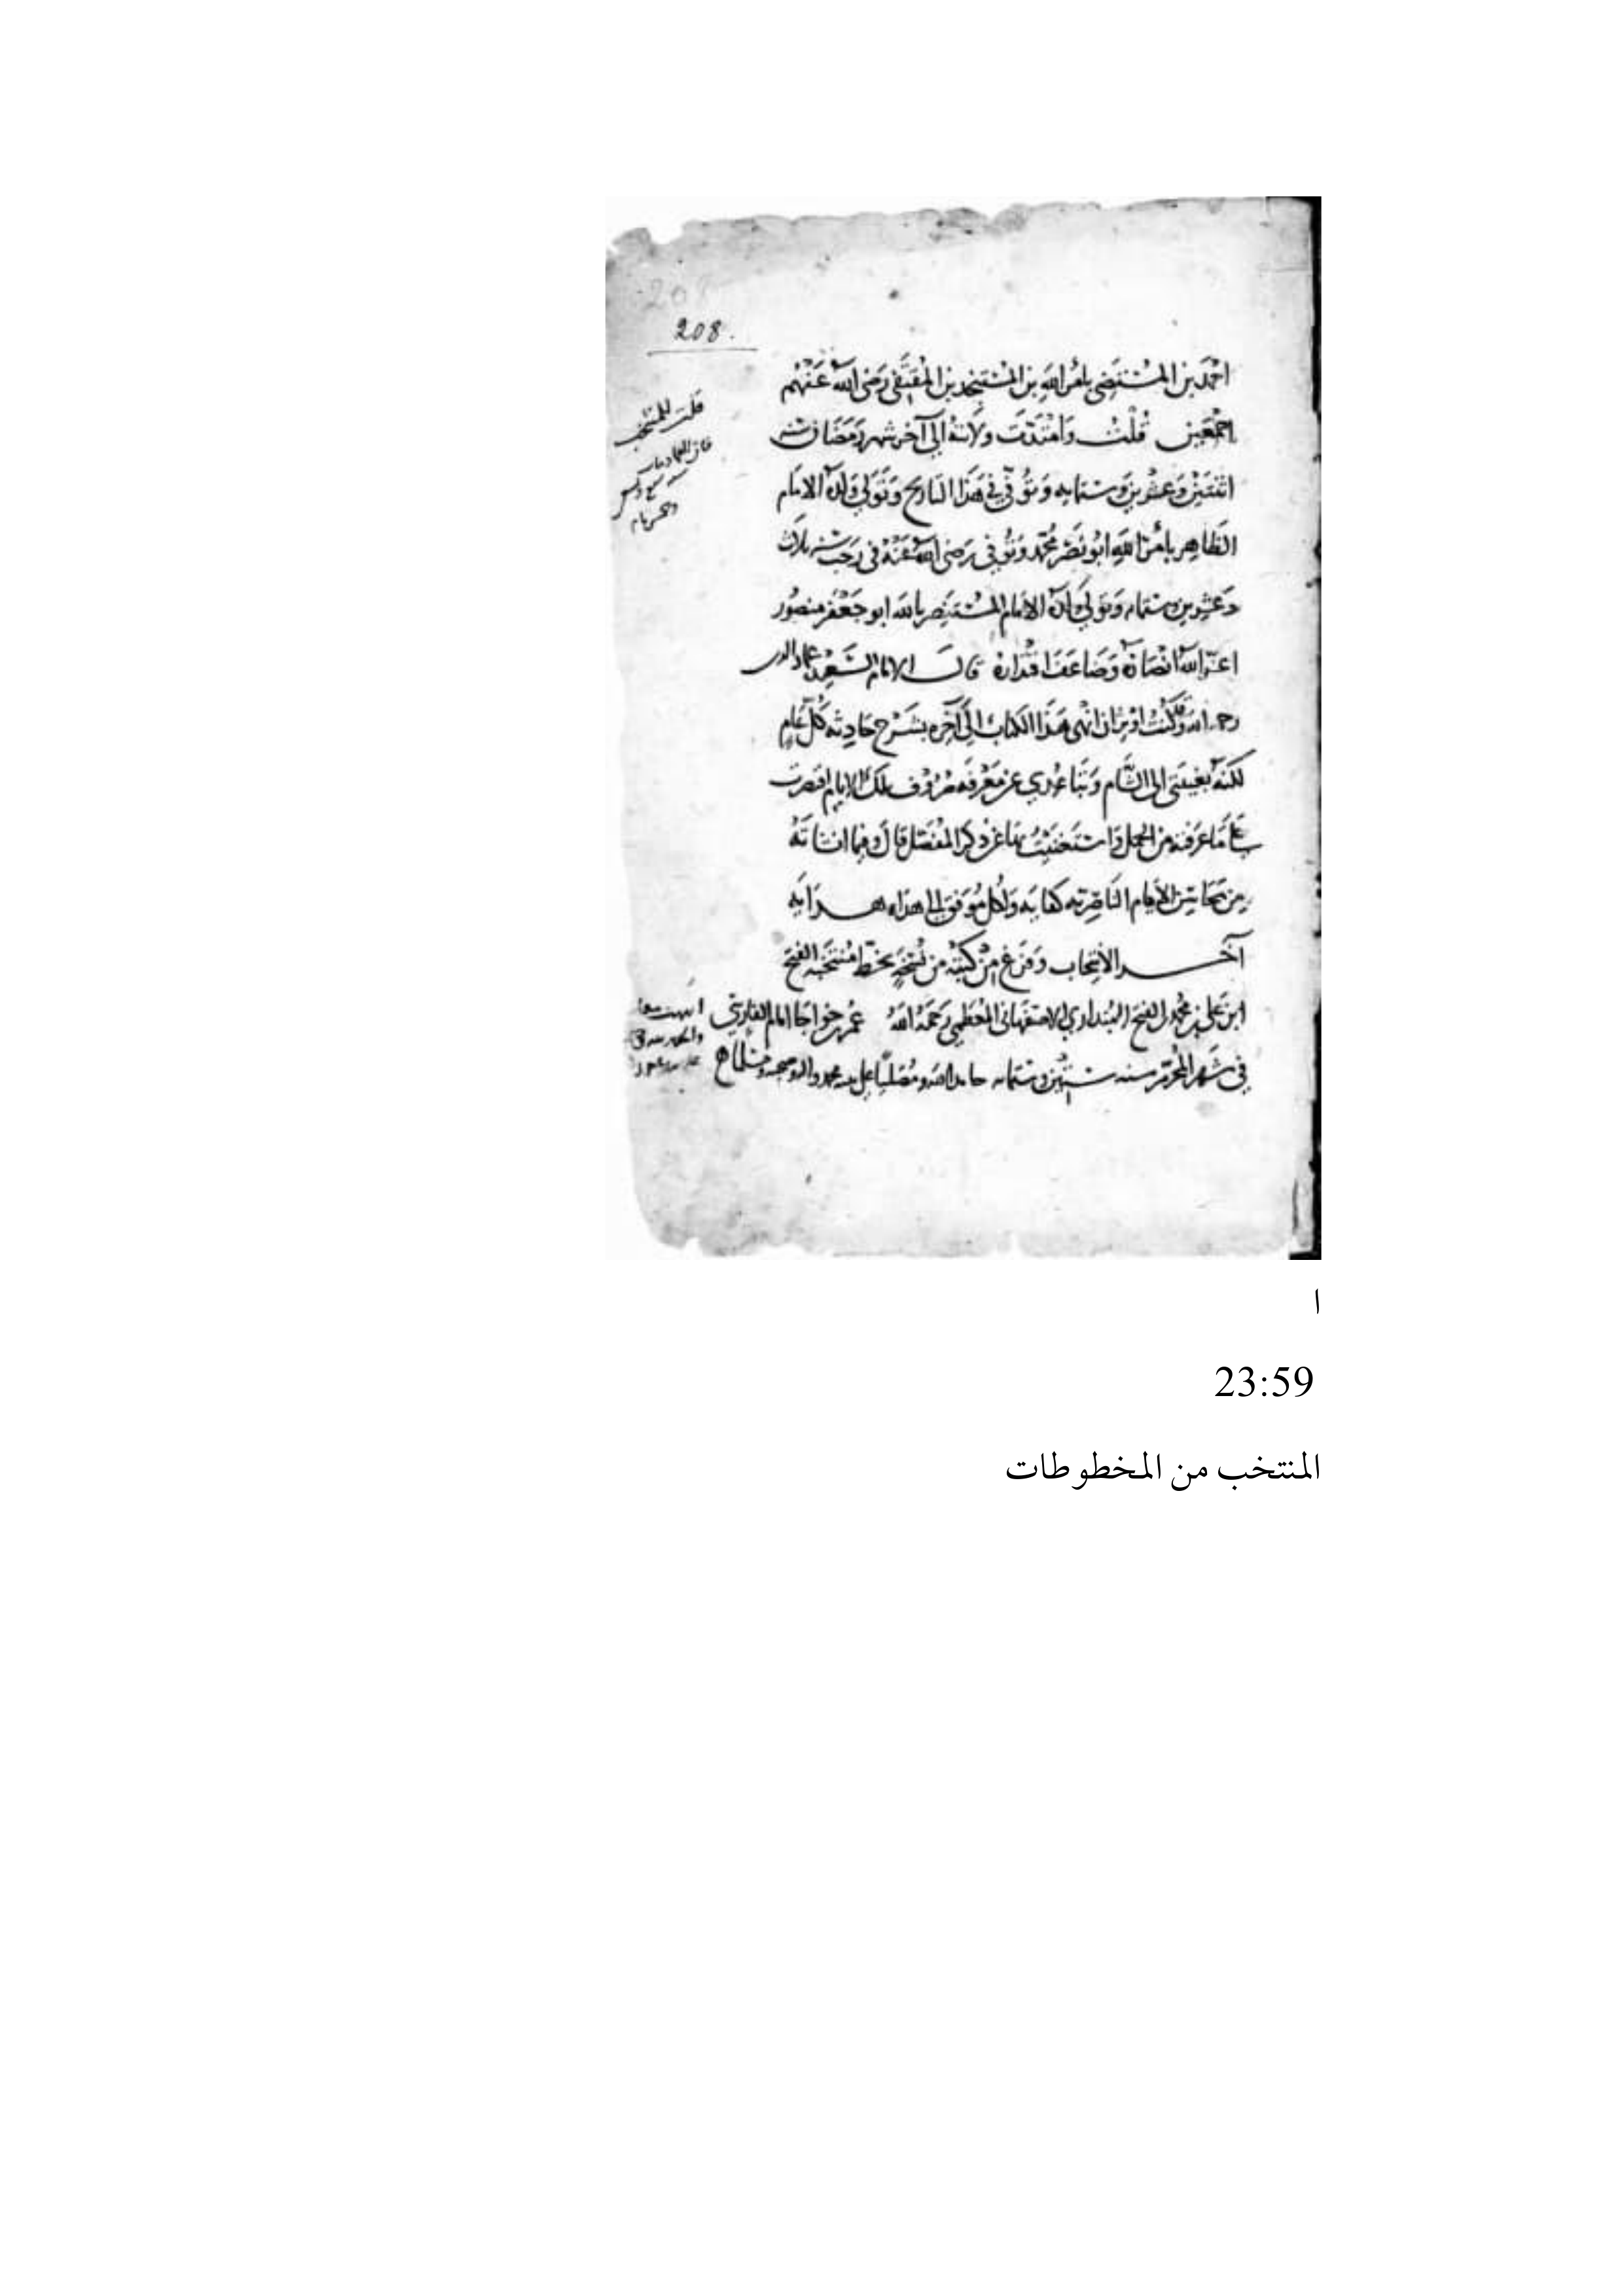 208.
احمد بن المستضي بامر الله بن المستنجد بن المقتفي رضي الله عنهم
اجمعين قلت وامتدت ولايته الى آخر شهر رمضان سنه
اثنتين وعشرين وستمايه وتوفي في هذا التاريخ وتولى ولده الامام
الظاهر بامر الله ابو نصر محمد وتوفي رضي الله عنه في رجب سنه ثلاث
وعشرين وستمايه وتولى ولده الامام المستنصر بالله ابو جعفر منصور
اعز الله انصاره وضاعف اقتداره قال الامام السعيد عماد الدين
رحمه الله وكنت اوثر ان انهي هذا الكتاب الى آخره بشرح حادثه كل عام
لكنه بغيبتي الى الشام وتباعدي عن معرفه حروف تلك الايام اقتصرت
على ما عرفته من الجمل واستغنيت بها عن ذكر المفصل قال وفيما انشاته
من محاسن الايام الناصريه كفايه ولكل موفق الى اهدايه هدايه
آخر الانتخاب وفرغ من كتبته من نسخه بخط منتخبه الفتح
ابن علي بن محمد بن الفتح البنداري الاصفهاني المعظمي رحمه الله عمر خواجا امام الفارسي
في شهر المحرم سنه ستين وستمايه حامدا لله ومصليا على نبيه محمد وآله وصحبه ومسلما
قلت للمنتخب
فان العماد مات
ا
23:59
المنتخب من المخطوطات